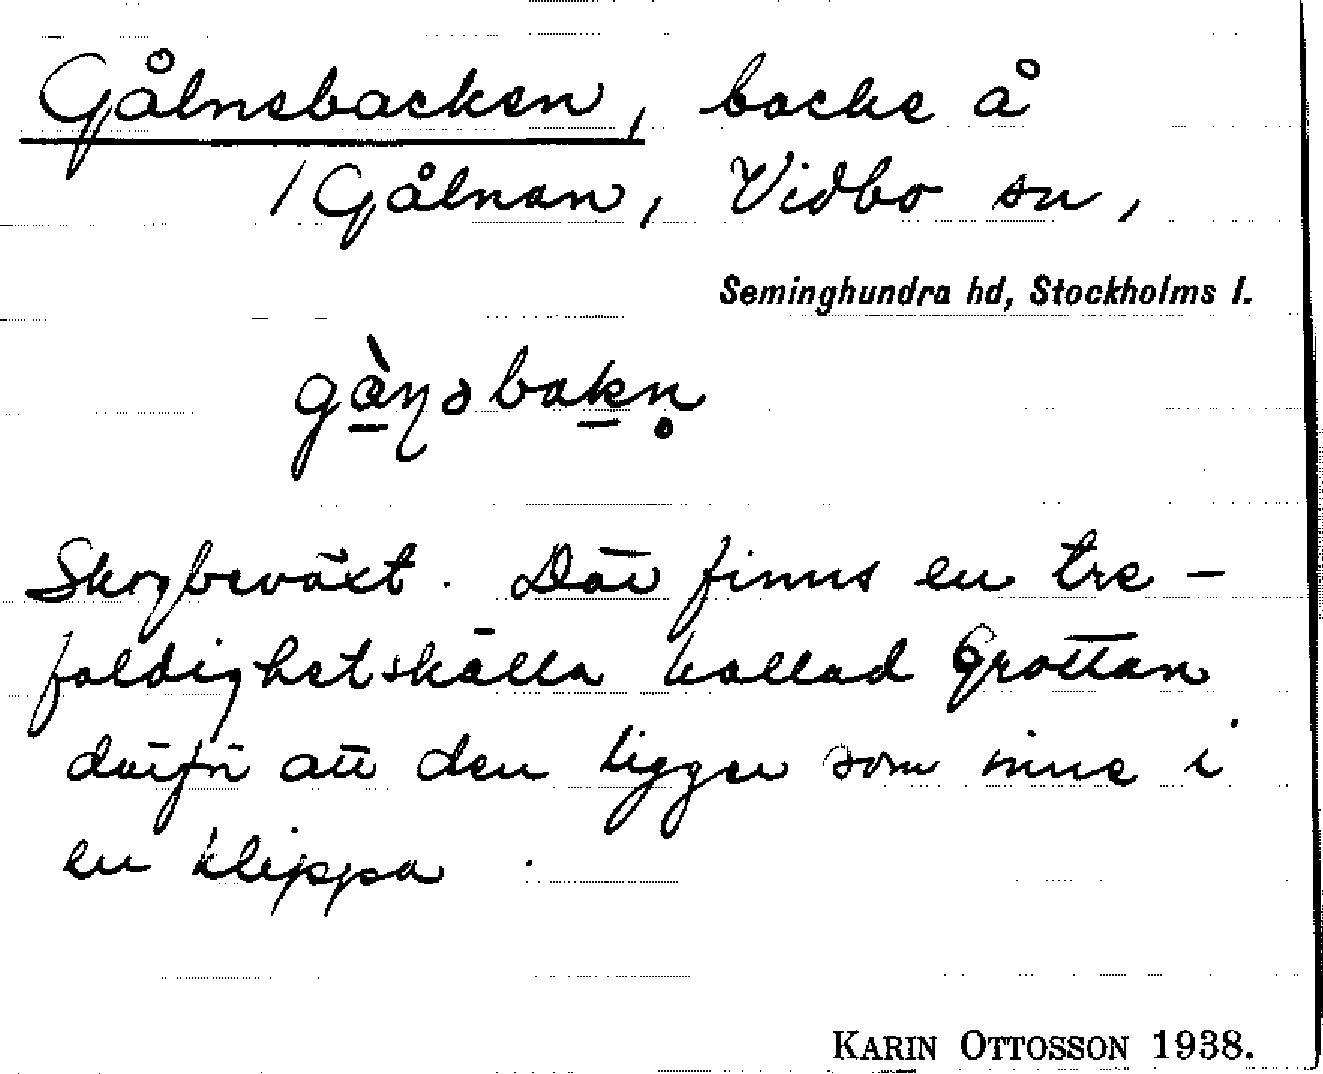 Gålnebacken, backe å
/Gålnan, Vidbo sn,
Seminghundra hd, Stockholms l.
Skogbeväxt. Där finns en tre-
faldighetskälla kallad Grottan
därför att den ligger som inne i
en klippa.
KARIN OTTOSSON 1938.